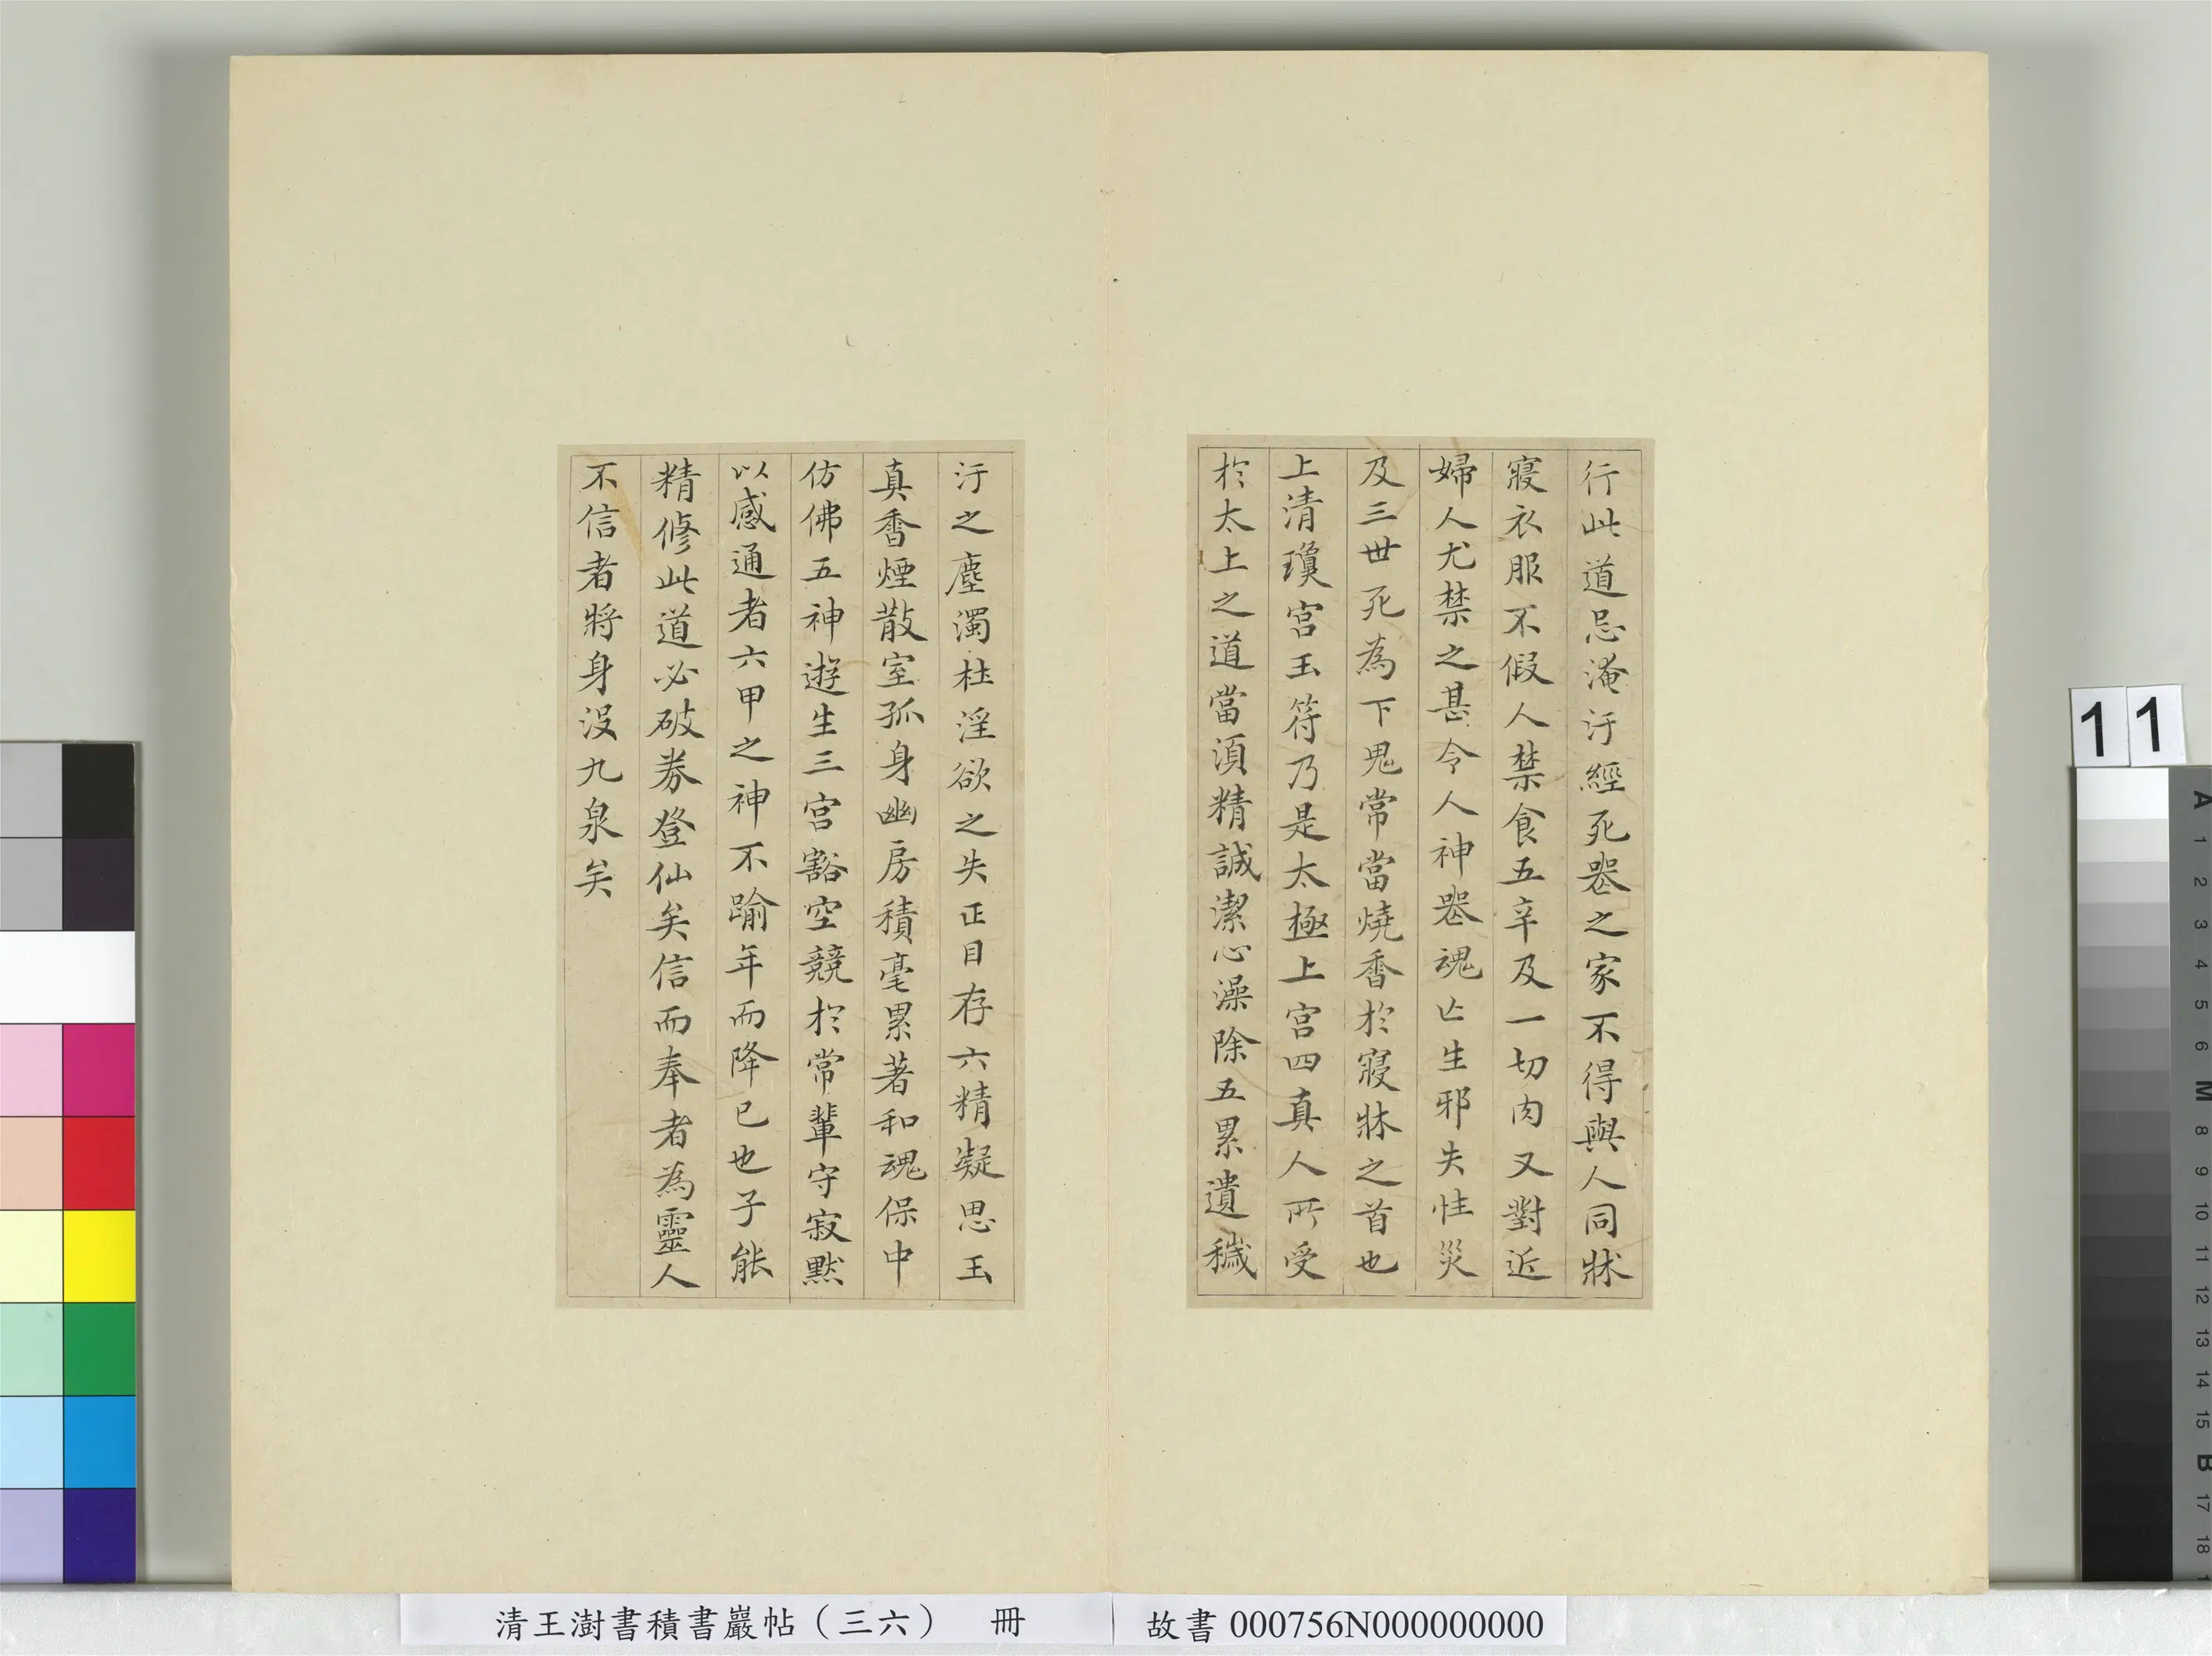 行此道忌淹汙經死喪之家不得與人同牀
寢衣服不假人禁食五辛及一切肉又對近
婦人尤禁之甚令人神喪魂亡生邪失性災
及三世死為下鬼常當燒香於寢牀之首也
上清瓊宮玉符乃是太極上宮四真人所受
於太上之道當須精誠潔心澡除五累遺穢
汙之塵濁杜淫欲之失正目存六精凝思玉
真香煙散室孤身幽房積毫累著和魂保中
仿佛五神遊生三宮豁空競於常輩守寂默
以感通者六甲之神不踰年而降已也子能
精修此道必破券登仙矣信而奉者為靈人
不信者將身沒九泉矣
清王澍書積書巖帖（三六） 冊
故書 000756N000000000
11
A
1
2
3
4
5
6
M
8
9
10
11
12
13
14
15
B
17
18